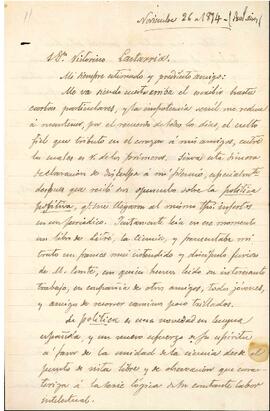 Noviembre 26 de 1874
Sr. Dn. Victorino Lastarria.
Mi siempre estimado y predilecto amigo:
Me va siendo cuesta arriba el escribir hasta
cartas particulares, y la impotencia senil me reduce
á mantener, por el recuerdo de todos los dias, el culto
fiel que tributo en el corazon á mis amigos, entre
los cuales es V. de los primeros. Sirva esta sincera
declaracion de disculpa á mi silencio, especialmente
despues que recibí su opusculo sobre la política
positiva, y que llegaron al mismo fin insertos
en un periódico. Justamente leia en ese momento
un libro de Littré, la Ciencia, y frecuentaba mi
trato un frances muy entendido y discípulo
de M. Comte, en quien hemos leido su interesante
trabajo, en compañia de otros amigos, todos jóvenes,
y amigos de recorrer caminos poco trillados.
La política es una novedad en lengua
española, y un nuevo esfuerzo de su espíritu
á favor de la unidad de la ciencia desde el
punto de vista libre y de observacion que carac-
teriza á la serie lógica de su constante labor
intelectual.